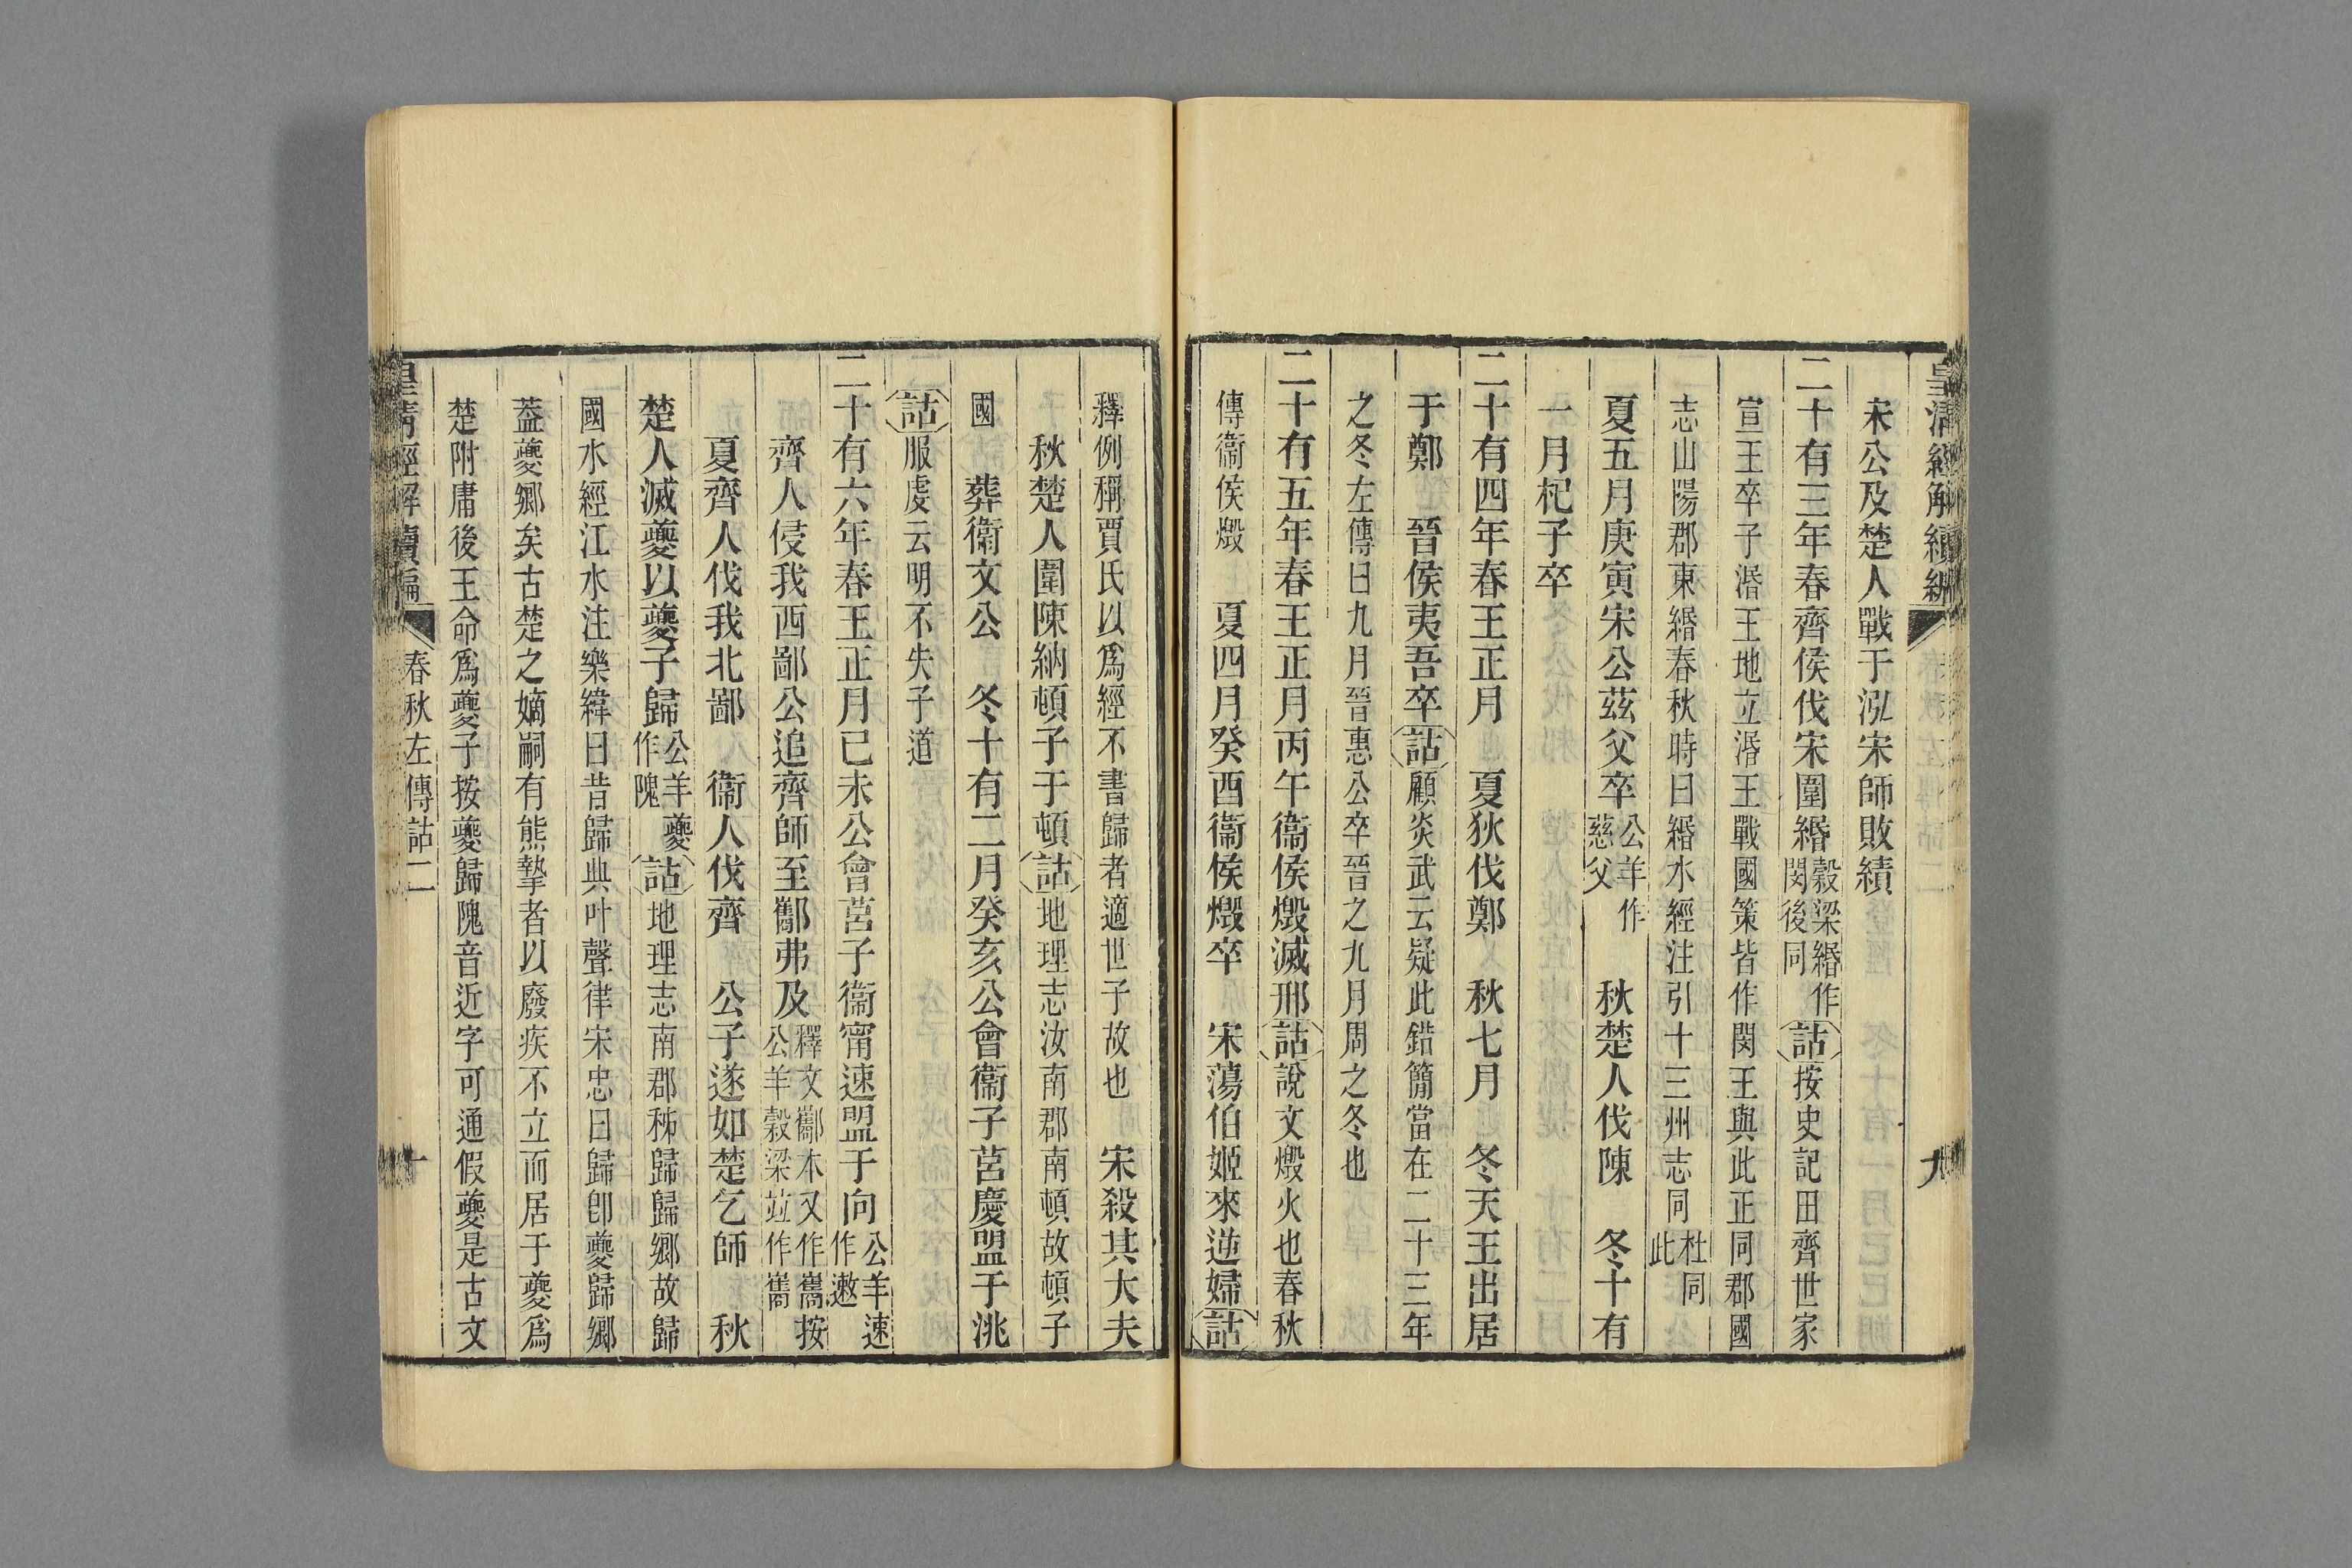 皇清經解續編
九
朱公及楚人戰于泓宋師敗績
二十有三年春齊侯伐宋圍緡穀梁緡作閔後同詁按史記田齊世家
宣王卒子湣王地立湣王戰國策皆作閔王與此正同郡國
志山陽郡東緡春秋時曰緡水經注引十三州志同杜同此
夏五月庚寅宋公茲父卒公羊作慈父 秋楚人伐陳 冬十有
一月杞子卒
二十有四年春王正月 夏狄伐鄭 秋七月 冬天王出居
于鄭 晉侯夷吾卒詁顧炎武云疑此錯簡當在二十三年
之冬左傳曰九月晉惠公卒晉之九月周之冬也
二十有五年春王正月丙午衞侯燬滅邢詁說文燬火也春秋
傳衞侯燬 夏四月癸酉衞侯燬卒 宋蕩伯姬來逆婦詁
釋例稱賈氏以爲經不書歸者適世子故也 宋殺其大夫
秋楚人圍陳納頓子于頓詁地理志汝南郡南頓故頓子
國 葬衞文公 冬十有二月癸亥公會衞子莒慶盟于洮
詁服虔云明不失子道
二十有六年春王正月己未公會莒子衞甯速盟于向公羊速作遬
齊人侵我西鄙公追齊師至酅弗及釋文酅本又作巂按公羊穀梁竝作巂
夏齊人伐我北鄙 衞人伐齊 公子遂如楚乞師 秋
楚人滅夔以夔子歸公羊夔作隗詁地理志南郡秭歸歸鄉故歸
國水經江水注樂緯曰昔歸典叶聲律宋忠曰歸卽夔歸鄉
葢夔鄉矣古楚之嫡嗣有熊摯者以廢疾不立而居于夔爲
楚附庸後王命爲夔子按夔歸隗音近字可通假夔是古文
皇清經解續編
春秋左傳詁二
十